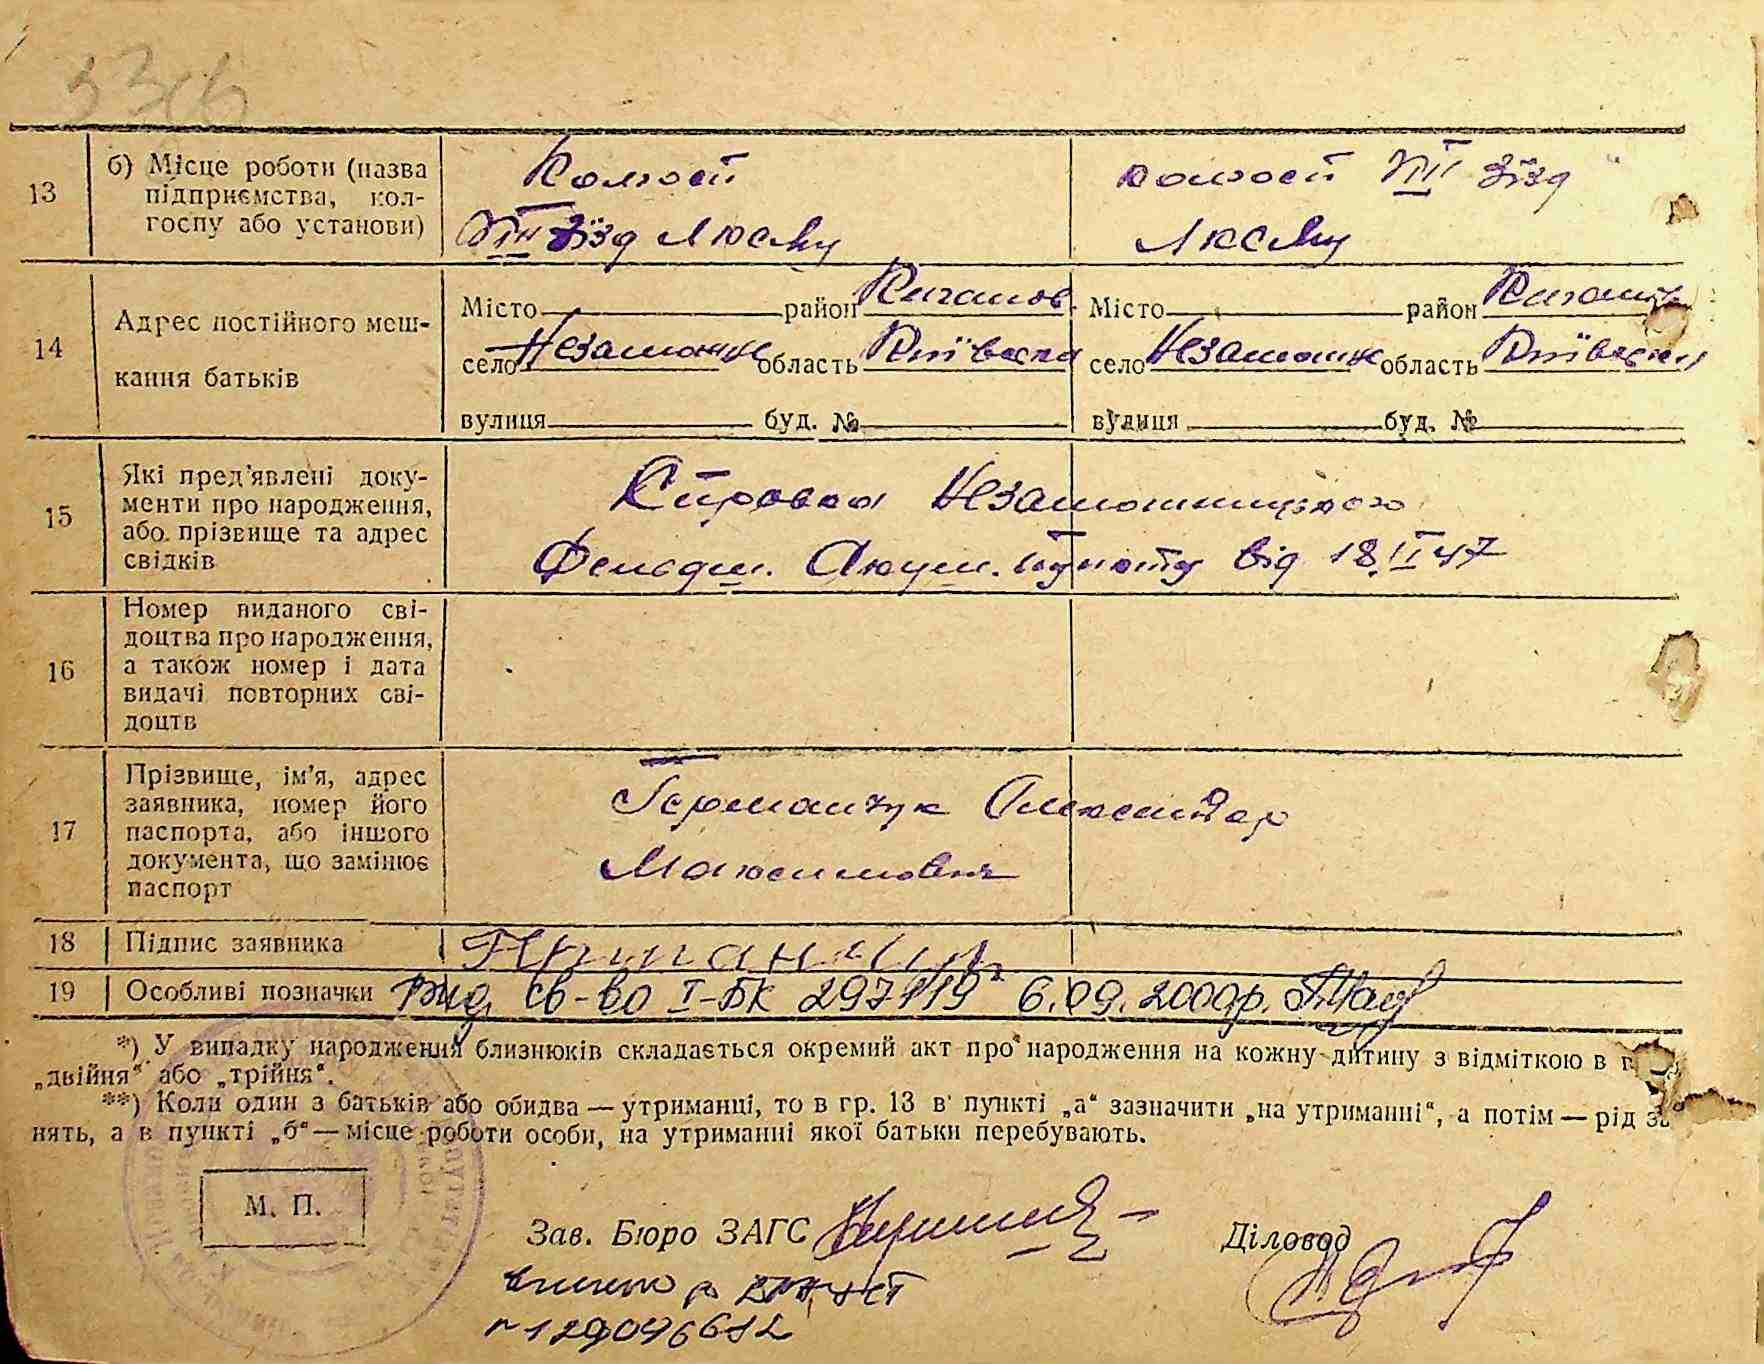 13
б) Місце роботи (назва
підприємства, кол-
госпу або установи)
Колгосп
VIII зїзд
колгосп VIII зїзд
14
Адрес постійного меш-
кання батьків
Місто район Каганов
село область Київська
вулиця буд. №
Місто район
село область Київська
вулиця буд. №
15
Які пред'явлені доку-
менти про народження,
або прізвище та адрес
свідків
Справка Незаможницького
Фельдш. Акуш. пункту від 18.II 47
16
Номер виданого сві-
доцтва про народження,
а також номер і дата
видачі повторних сві-
доцтв
17
Прізвище, ім'я, адрес
заявника, номер його
паспорта, або іншого
документа, що замінює
паспорт
Германчук Александра
Максимовна
18 Підпис заявника
19 Особливі позначки Вид. св-во I-БК 297119 6.09.2000р.
*) У випадку народження близнюків складається окремий акт про народження на кожну дитину з відміткою в
„двійня" або „трійня".
**) Коли один з батьків або обидва — утриманці, то в гр. 13 в пункті „а" зазначити „на утриманні", а потім — рід за-
нять, а в пункті „б" — місце роботи особи, на утриманні якої батьки перебувають.
М. П.
Зав. Бюро ЗАГС
Діловод